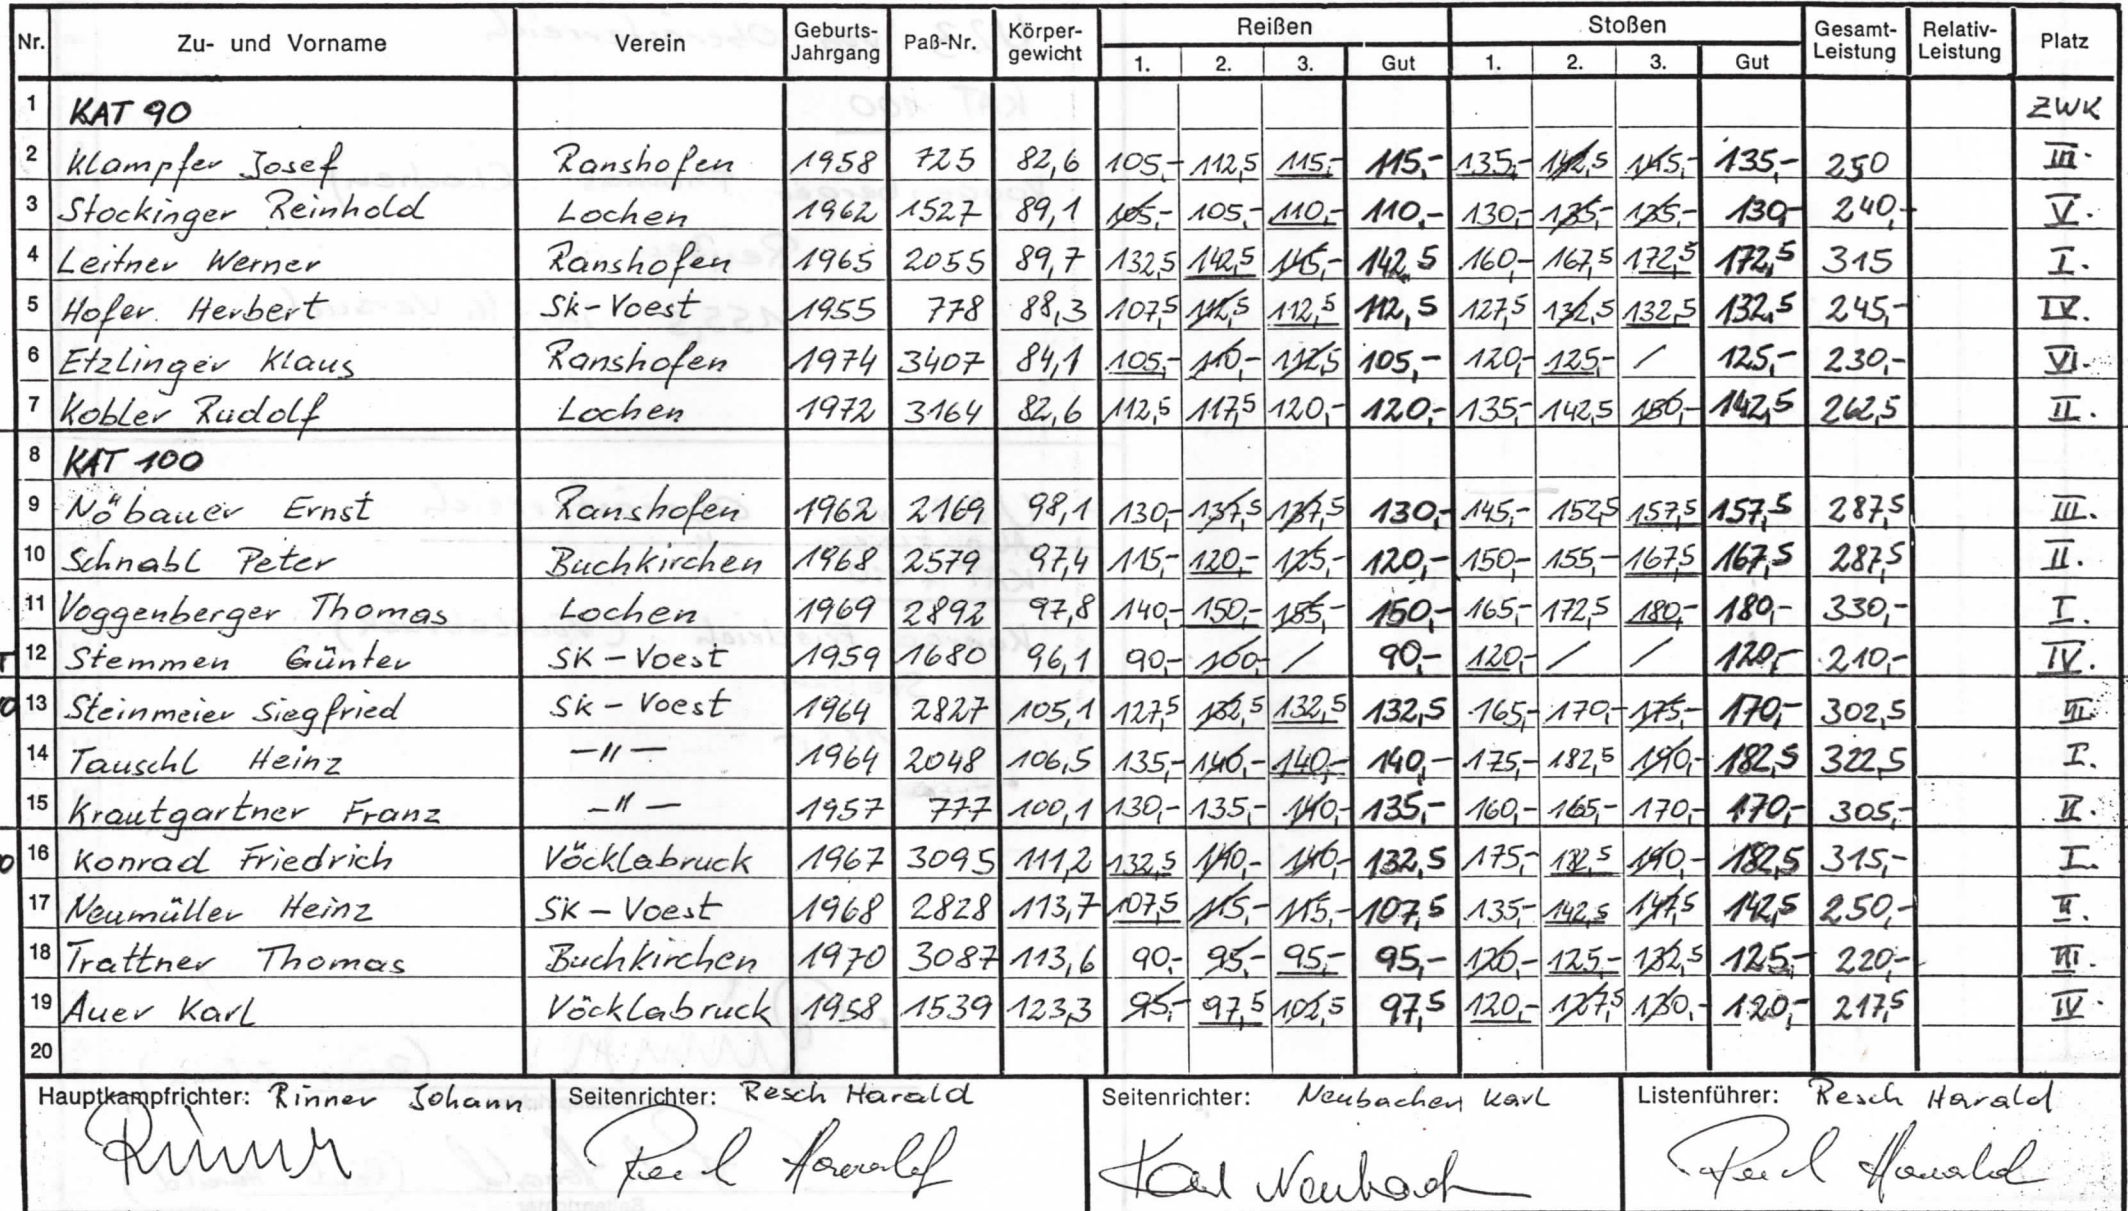 Nr. Zu- und Vorname Verein Geburts-Jahrgang Paß-Nr. Körper-gewicht Reißen Stoßen Gesamt-Leistung Relativ-Leistung Platz
1. 2. 3. Gut 1. 2. 3. Gut
1 KAT 90 ZWK
2 Klampfer Josef Ranshofen 1958 725 82,6 105,- 112,5 115,- 115,- 135,- 142,5 145,- 135,- 250 III.
3 Stockinger Reinhold Lochen 1962 1527 89,1 105,- 105,- 110,- 110,- 130,- 135,- 135,- 130,- 240,- V.
4 Leitner Werner Ranshofen 1965 2055 89,7 132,5 142,5 145,- 142,5 160,- 167,5 172,5 172,5 315 I.
5 Hofer Herbert SK-Voest 1955 778 88,3 107,5 112,5 112,5 112,5 127,5 132,5 132,5 132,5 245,- IV.
6 Etzlinger Klaus Ranshofen 1974 3407 84,1 105,- 110,- 112,5 105,- 120,- 125,- / 125,- 230,- VI.
7 Kobler Rudolf Lochen 1972 3164 82,6 112,5 117,5 120,- 120,- 135,- 142,5 150,- 142,5 262,5 II.
8 KAT 100
9 Nöbauer Ernst Ranshofen 1962 2169 98,1 130,- 137,5 137,5 130,- 145,- 152,5 157,5 157,5 287,5 III.
10 Schnabl Peter Buchkirchen 1968 2579 97,4 115,- 120,- 125,- 120,- 150,- 155,- 167,5 167,5 287,5 II.
11 Voggenberger Thomas Lochen 1969 2892 97,8 140,- 150,- 155,- 150,- 165,- 172,5 180,- 180,- 330,- I.
12 Stemmen Günter SK-Voest 1959 1680 96,1 90,- 100,- / 90,- 120,- / / 120,- 210,- IV.
13 Steinmeier Siegfried SK-Voest 1964 2827 105,1 127,5 132,5 132,5 132,5 165,- 170,- 175,- 170,- 302,5 III.
14 Tauschl Heinz -"- 1964 2048 106,5 135,- 140,- 140,- 140,- 175,- 182,5 190,- 182,5 322,5 I.
15 Krautgartner Franz -"- 1957 777 100,1 130,- 135,- 140,- 135,- 160,- 165,- 170,- 170,- 305,- II.
16 Konrad Friedrich Vöcklabruck 1967 3095 111,2 132,5 140,- 140,- 132,5 175,- 182,5 190,- 182,5 315,- I.
17 Neumüller Heinz SK-Voest 1968 2828 113,7 107,5 115,- 115,- 107,5 135,- 142,5 147,5 142,5 250,- II.
18 Trattner Thomas Buchkirchen 1970 3087 113,6 90,- 95,- 95,- 95,- 120,- 125,- 132,5 125,- 220,- III.
19 Auer Karl Vöcklabruck 1958 1539 123,3 95,- 97,5 102,5 97,5 120,- 127,5 130,- 120,- 217,5 IV
20
Hauptkampfrichter: Rinner Johann Seitenrichter: Resch Harald Seitenrichter: Neubacher Karl Listenführer: Resch Harald
Rinner Resch Harald Karl Neubach Resch Harald